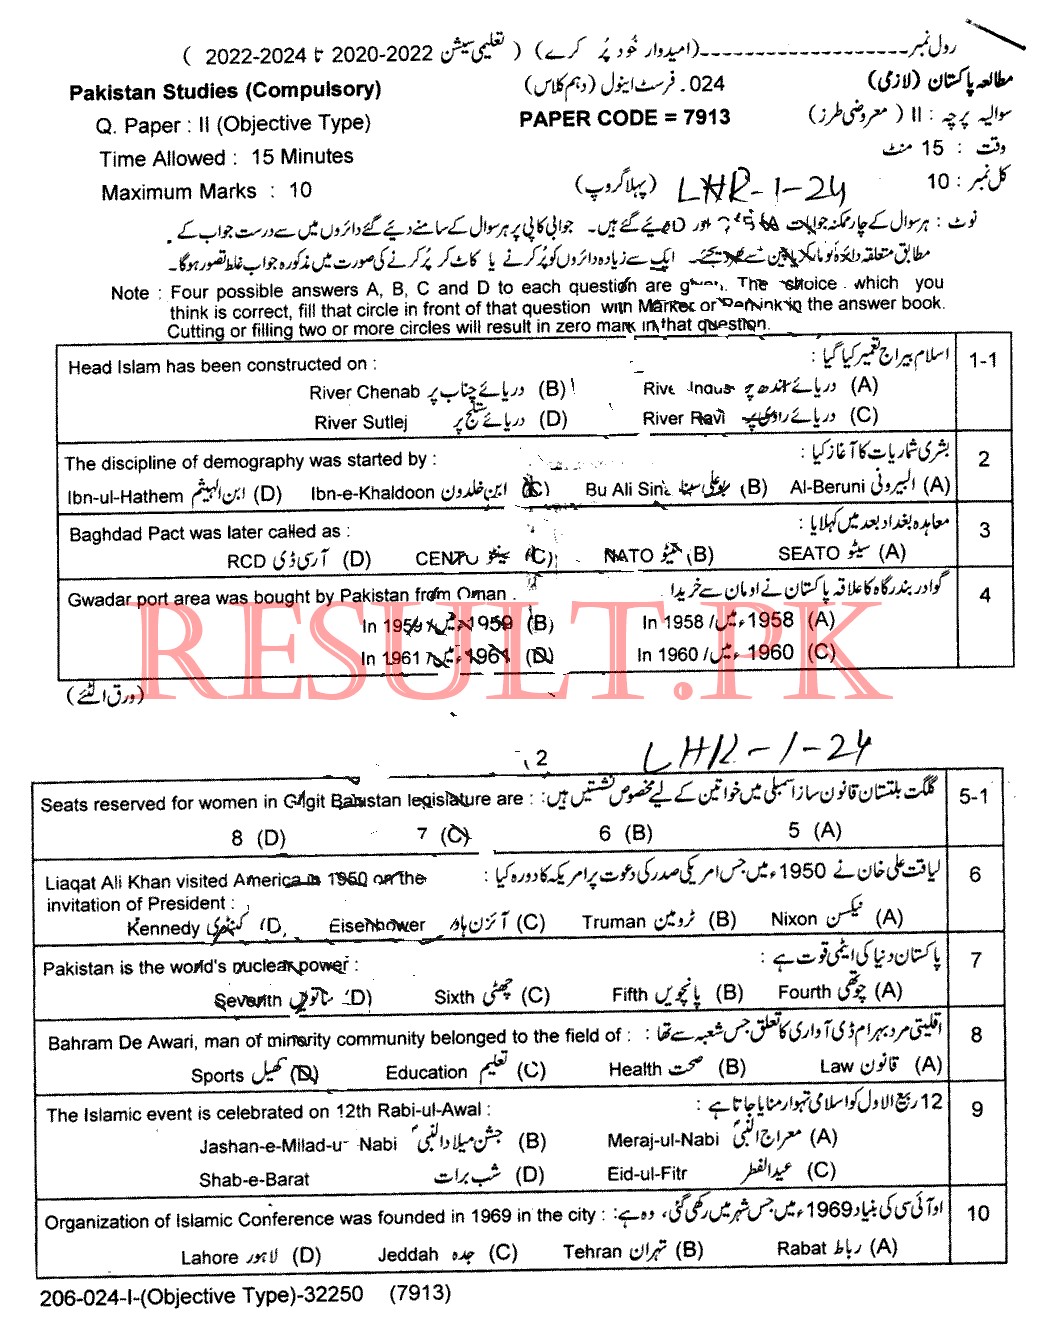 رول نمبر-------------------(امیدوار خُود پُر کرے) ( تعلیمی سیشن 2022-2020 تا 2024-2022 )
Pakistan Studies (Compulsory) 024۔ فرسٹ اینول (دہم کلاس) مطالعہ پاکستان (لازمی)
Q. Paper : II (Objective Type) PAPER CODE = 7913 سوالیہ پرچہ : II ( معروضی طرز)
Time Allowed : 15 Minutes وقت : 15 منٹ
Maximum Marks : 10 (پہلا گروپ) LHR-1-24 کل نمبر : 10
نوٹ : ہر سوال کے چار ممکنہ جوابات A اور D دیئے گئے ہیں۔ جوابی کاپی پر ہر سوال کے سامنے دیئے گئے دائروں میں سے درست جواب کے
مطابق متعلقہ دائرہ کو مارکر یا پین سے بھر دیجئے۔ ایک سے زیادہ دائروں کو پُر کرنے یا کاٹ کر پُر کرنے کی صورت میں مذکورہ جواب غلط تصور ہوگا۔
Note : Four possible answers A, B, C and D to each question are given. The choice which you
think is correct, fill that circle in front of that question with Marker or Pen ink in the answer book.
Cutting or filling two or more circles will result in zero mark in that question.
Head Islam has been constructed on : اسلام بیراج تعمیر کیا گیا : 1-1
River Chenab دریائے چناب پر (B) River Indus دریائے سندھ پر (A)
River Sutlej دریائے ستلج پر (D) River Ravi دریائے راوی پر (C)
The discipline of demography was started by : بشری شماریات کا آغاز کیا : 2
Ibn-ul-Hathem ابن الہیثم (D) Ibn-e-Khaldoon ابن خلدون (C) Bu Ali Sina بو علی سینا (B) Al-Beruni البیرونی (A)
Baghdad Pact was later called as : معاہدہ بغداد بعد میں کہلایا : 3
RCD آر سی ڈی (D) CENTO سینٹو (C) NATO نیٹو (B) SEATO سیٹو (A)
Gwadar port area was bought by Pakistan from Oman . گوادر بندرگاہ کا علاقہ پاکستان نے اومان سے خریدا 4
In 1959 / میں 1959 (B) In 1958 / میں 1958ء (A)
In 1961 / میں 1961ء (D) In 1960 / میں 1960ء (C)
RESULT.PK
(ورق الٹئے)
2 LHR-1-24
Seats reserved for women in Gilgit Baltistan legislature are : گلگت بلتستان قانون ساز اسمبلی میں خواتین کے لیے مخصوص نشستیں ہیں : 5-1
8 (D) 7 (C) 6 (B) 5 (A)
Liaqat Ali Khan visited America in 1950 on the لیاقت علی خان نے 1950ء میں جس امریکی صدر کی دعوت پر امریکہ کا دورہ کیا : 6
invitation of President :
Kennedy کینیڈی (D) Eisenhower آئزن ہاور (C) Truman ٹرومین (B) Nixon نیکسن (A)
Pakistan is the world's nuclear power : پاکستان دنیا کی ایٹمی قوت ہے : 7
Seventh ساتویں (D) Sixth چھٹی (C) Fifth پانچویں (B) Fourth چوتھی (A)
Bahram De Awari, man of minority community belonged to the field of : اقلیتی مرد بہرام ڈی آواری کا تعلق جس شعبہ سے تھا : 8
Sports کھیل (D) Education تعلیم (C) Health صحت (B) Law قانون (A)
The Islamic event is celebrated on 12th Rabi-ul-Awal : 12 ربیع الاول کو اسلامی تہوار منایا جاتا ہے : 9
Jashan-e-Milad-u- Nabi جشن میلاد النبیؐ (B) Meraj-ul-Nabi معراج النبیؐ (A)
Shab-e-Barat شب برات (D) Eid-ul-Fitr عید الفطر (C)
Organization of Islamic Conference was founded in 1969 in the city : او آئی سی کی بنیاد 1969ء میں جس شہر میں رکھی گئی، وہ ہے : 10
Lahore لاہور (D) Jeddah جدہ (C) Tehran تہران (B) Rabat رباط (A)
206-024-I-(Objective Type)-32250 (7913)